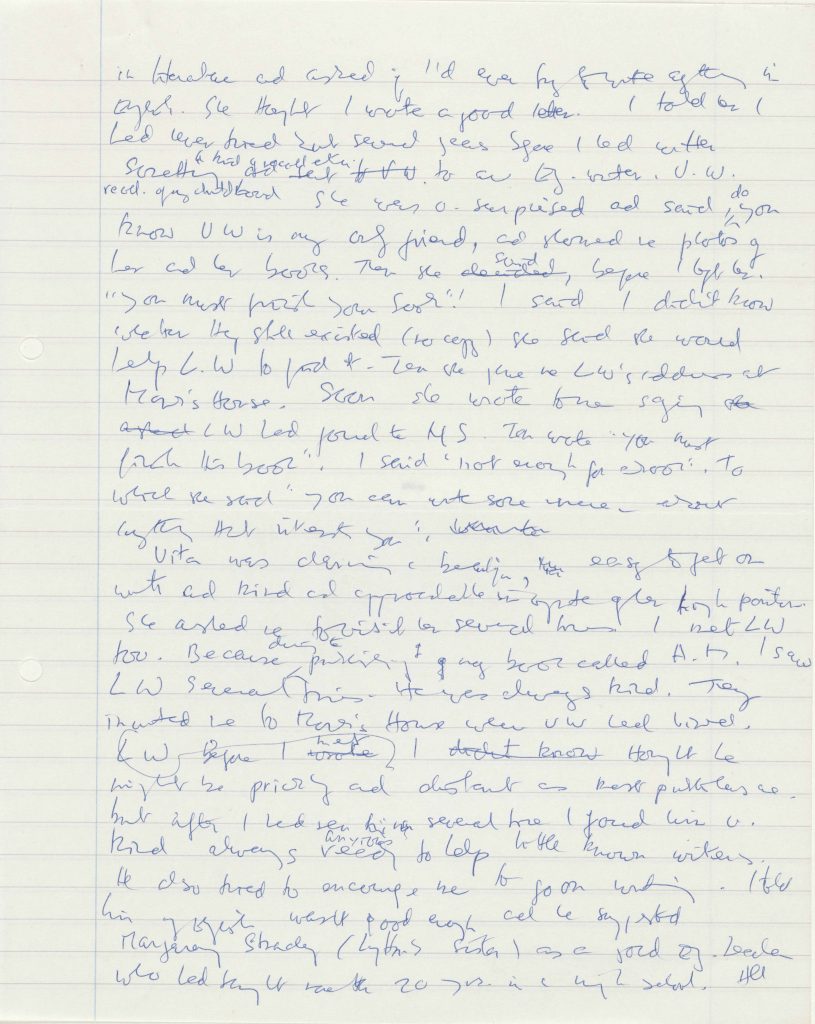 in literature and asked if I'd ever try to write anything in
English. She thought I wrote a good letter. I told her I
had never tried but several years before I had written
something and sent it to VW to an Eg. writer. V. W.
recol. of my childhood She was v. surprised and said, do you
know VW is my only friend, and showed me photos of
her and her books. Then she decided, said before I left her.
"you must finish your book"! I said I didn't know
whether they still existed (no copy) she said she would
help L.W to find it. Then she gave me LW's address at
Monk's House. Soon she wrote to me saying she
asked LW had found the M S. Then wrote "you must
finish this book". I said "not enough for a book". To
which she said "you can write some more - about
anything that interests you",
Vita was charming & beautiful, easy to get on
with and kind and approachable in spite of her high position.
She asked me to visit her several times I met LW
too. Because during the publishing of my book called A. M. I saw
LW several times. He was always kind. They
invited me to Monk's House where VW had lived.
LW before I wrote met I didn't know thought he
might be prickly and distant as most publishers are.
but after I had seen him several times I found him v.
kind always anxious ready to help little known writers.
He also tried to encourage me to go on writing. I told
him my English wasn't good enough and he suggested
Margery Strachey (Lytton's sister) as a good Eg. teacher
who had taught 20 yrs. in a high school.